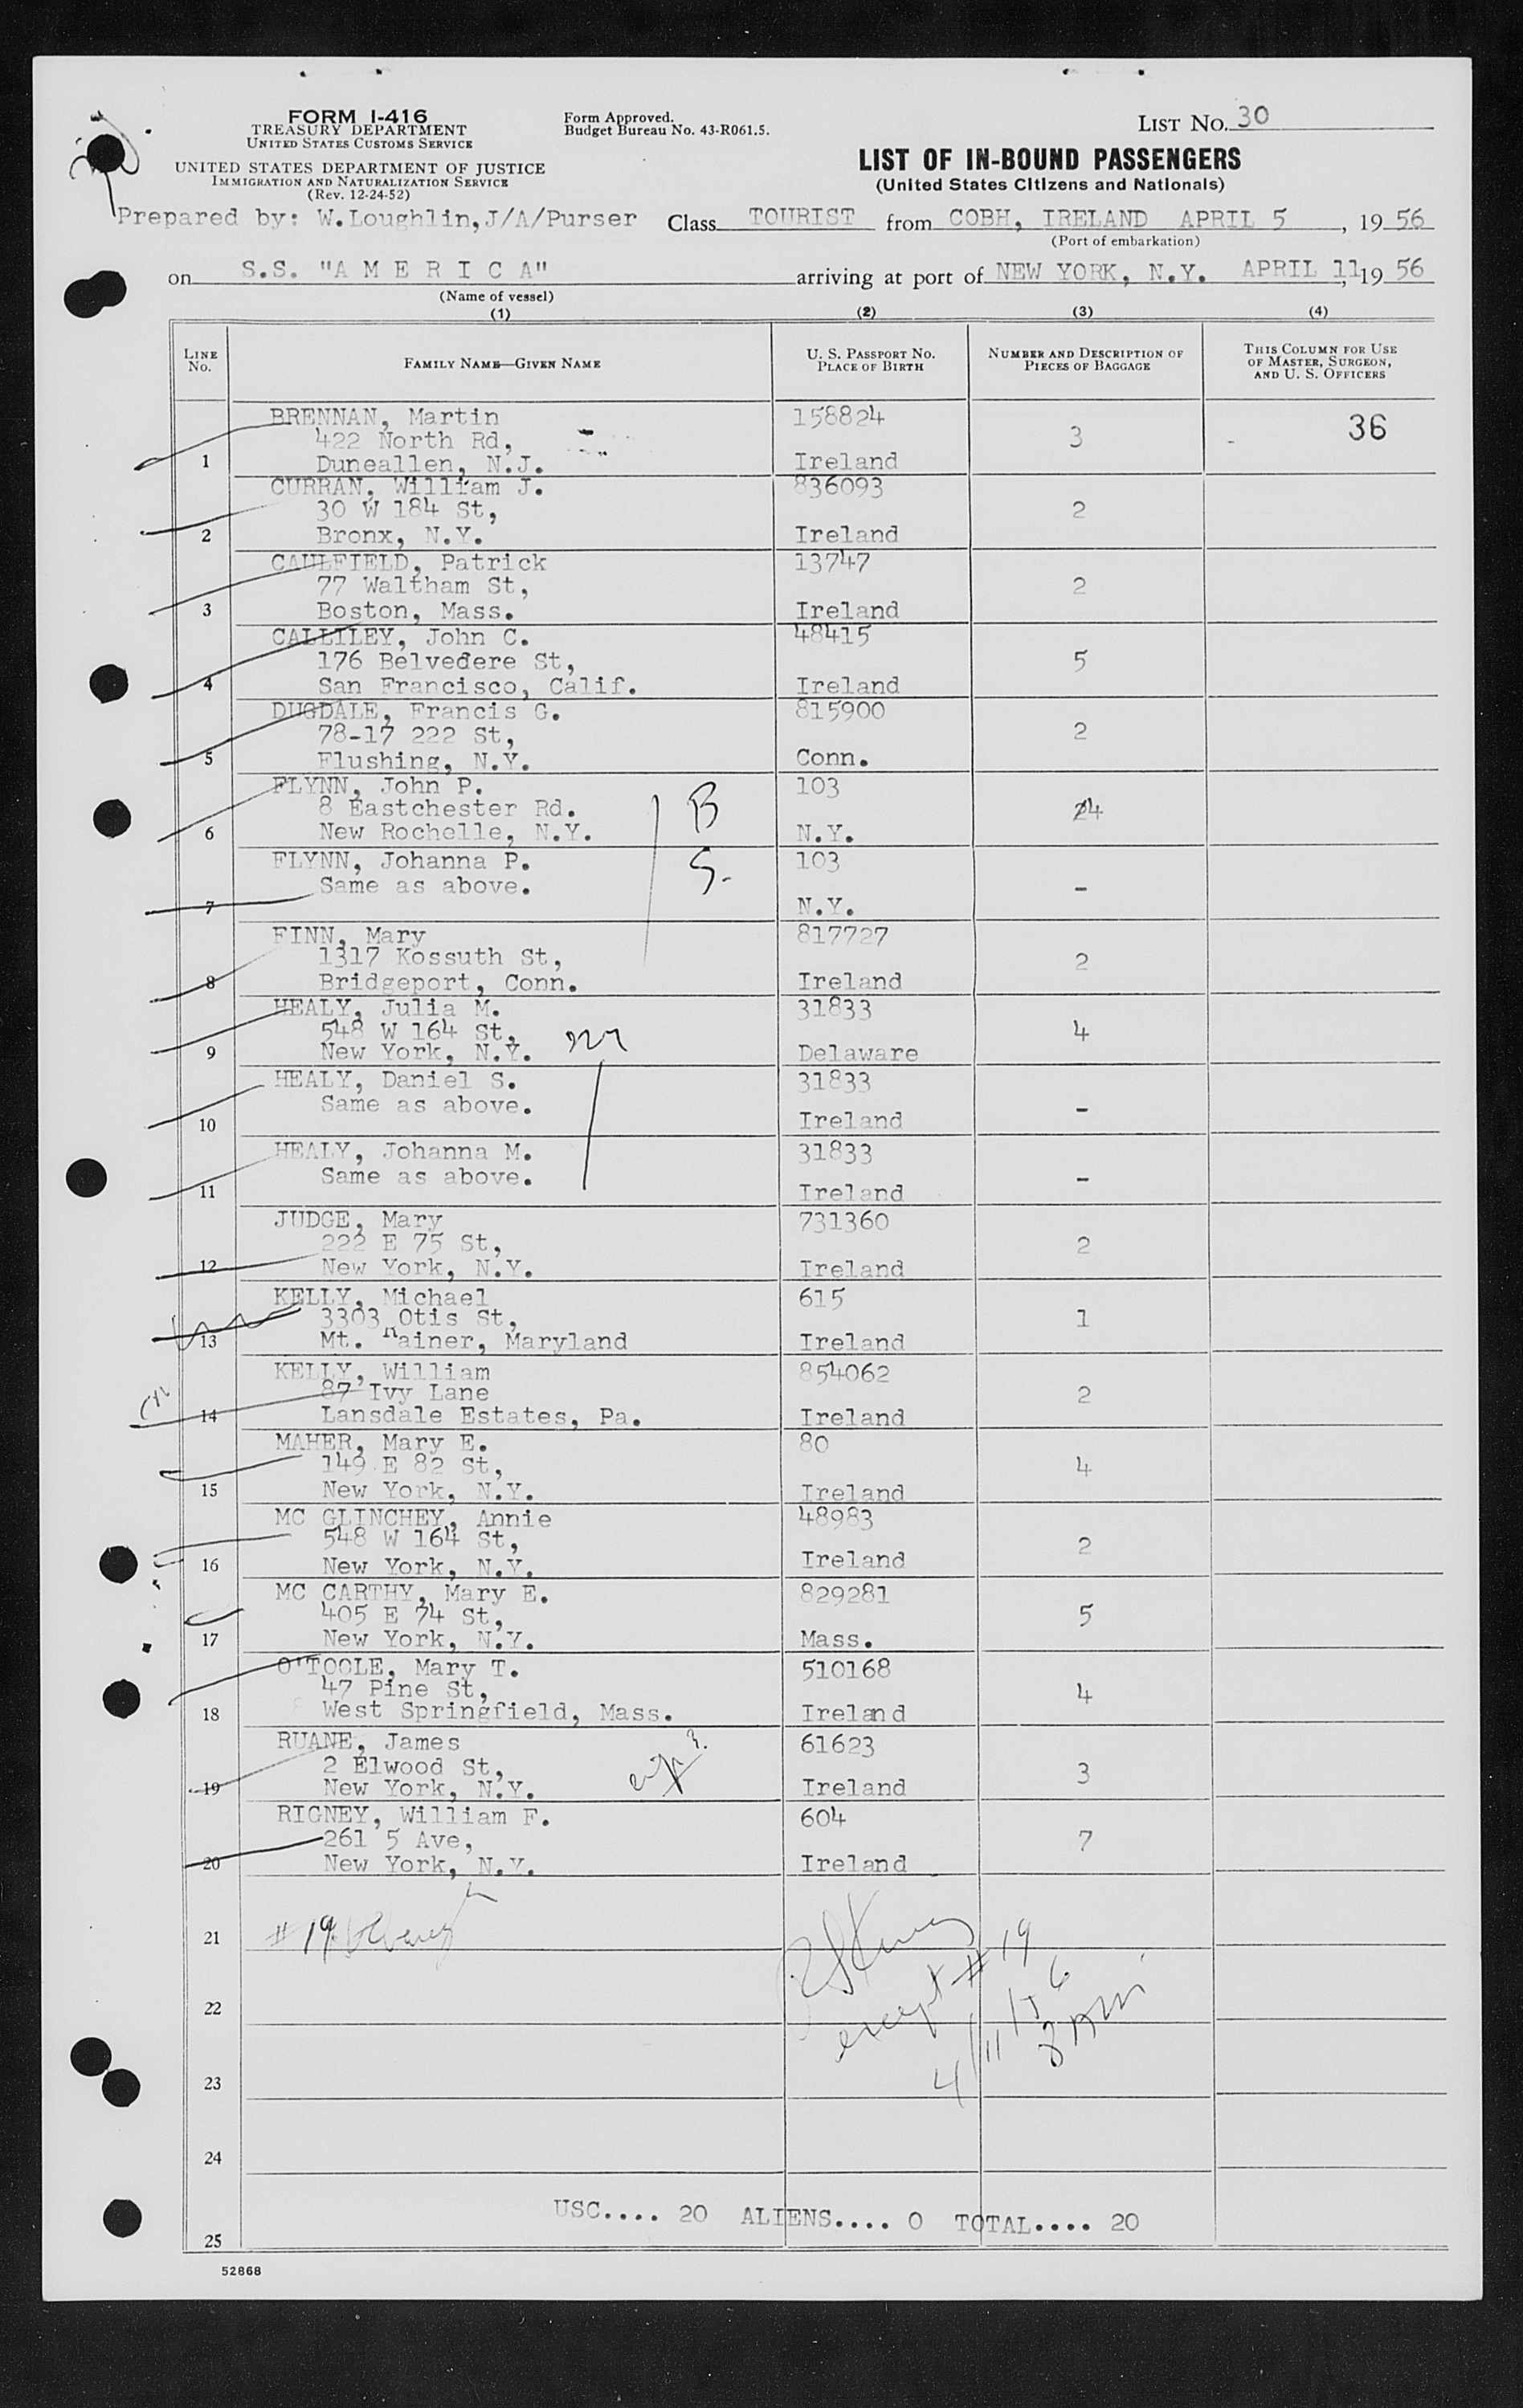 FORM I-416
TREASURY DEPARTMENT
UNITED STATES CUSTOMS SERVICE
UNITED STATES DEPARTMENT OF JUSTICE
IMMIGRATION AND NATURALIZATION SERVICE
(Rev. 12-24-52)
Form Approved.
Budget Bureau No. 43-R061.5.
LIST NO. 30
LIST OF IN-BOUND PASSENGERS
(United States Citizens and Nationals)
Prepared by: W.Loughlin,J/A/Purser Class TOURIST from COBH, IRELAND APRIL 5, 19 56
(Port of embarkation)
on S.S. "A M E R I C A" arriving at port of NEW YORK, N.Y. APRIL 11, 19 56
(Name of vessel)
(1) (2) (3) (4)
LINE No. FAMILY NAME—GIVEN NAME U. S. PASSPORT NO. PLACE OF BIRTH NUMBER AND DESCRIPTION OF PIECES OF BAGGAGE THIS COLUMN FOR USE OF MASTER, SURGEON, AND U. S. OFFICERS
BRENNAN, Martin 158824
422 North Rd, 3 36
1 Duneallen, N.J. Ireland
CURRAN, William J. 836093
30 W 184 St, 2
2 Bronx, N.Y. Ireland
CAULFIELD, Patrick 13747
77 Waltham St, 2
3 Boston, Mass. Ireland
CALLILEY, John C. 48415
176 Belvedere St, 5
4 San Francisco, Calif. Ireland
DUGDALE, Francis G. 815900
78-17 222 St, 2
5 Flushing, N.Y. Conn.
FLYNN, John P. 103
8 Eastchester Rd. B 4
6 New Rochelle, N.Y. N.Y.
FLYNN, Johanna P. S. 103
Same as above. -
7 N.Y.
FINN, Mary 817727
1317 Kossuth St, 2
8 Bridgeport, Conn. Ireland
HEALY, Julia M. 31833
548 W 164 St, 4
9 New York, N.Y. m Delaware
HEALY, Daniel S. 31833
Same as above. -
10 Ireland
HEALY, Johanna M. 31833
Same as above. -
11 Ireland
JUDGE, Mary 731360
222 E 75 St, 2
12 New York, N.Y. Ireland
KELLY, Michael 615
3303 Otis St, 1
13 Mt. Rainer, Maryland Ireland
KELLY, William 854062
87 Ivy Lane 2
14 Lansdale Estates, Pa. Ireland
MAHER, Mary E. 80
149 E 82 St, 4
15 New York, N.Y. Ireland
MC GLINCHEY, Annie 48983
548 W 164 St, 2
16 New York, N.Y. Ireland
MC CARTHY, Mary E. 829281
405 E 74 St, 5
17 New York, N.Y. Mass.
O'TOOLE, Mary T. 510168
47 Pine St, 4
18 West Springfield, Mass. Ireland
RUANE, James 61623
2 Elwood St, 3
19 New York, N.Y. Ireland
RIGNEY, William F. 604
261 5 Ave, 7
20 New York, N.Y. Ireland
21 # 19
except # 19
22
4/11/56
23
24
USC.... 20 ALIENS.... 0 TOTAL.... 20
25
52868